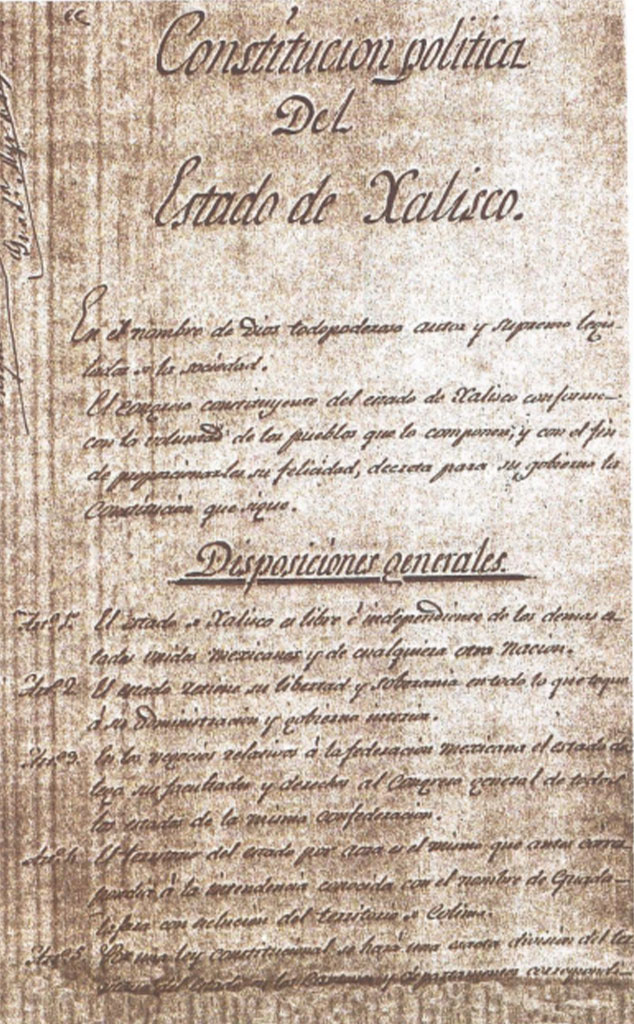 Constitucion politica
Del
Estado de Xalisco.
En el nombre de Dios todopoderoso autor y supremo legis-
lador de la sociedad.
El congreso constituyente del estado de Xalisco conforme
con la voluntad de los pueblos que lo componen, y con el fin
de proporcionarles su felicidad, decreta para su gobierno la
Constitucion que sigue.
Disposiciones generales.
Artº 1º El estado de Xalisco es libre é independiente de los demas es-
tados unidos mexicanos y de cualquiera otra nacion.
Artº 2 El estado retiene su libertad y soberania en todo lo que toque
á su administracion y gobierno interior.
Artº 3 En los negocios relativos á la federacion mexicana el estado de
lega sus facultades y derechos al Congreso general de todos
los estados de la misma confederacion.
Artº 4 El territorio del estado por ahora es el mismo que antes corres
pondia á la intendencia conocida con el nombre de Guada-
lajara con esclusion del territorio de Colima.
Artº 5 Por una ley constitucional se hará una exacta division del ter
del Estado en los Cantones y departamentos correspondi-